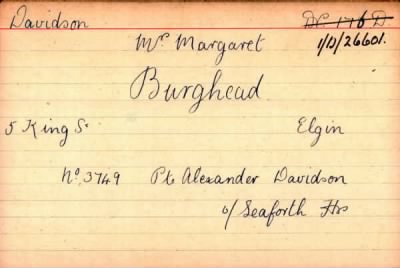 Davidson
DC 176 D.
1/D/26601.
Mrs Margaret
Burghead
5 King St
Elgin
No. 3749 Pte Alexander Davidson
o/ Seaforth Hrs